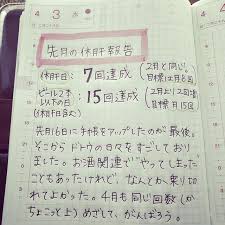 4
3 水
先月の休肝報告
休肝日: 7回達成 (2月と同じ。
目標は8回)
ビール2本
以下の日: 15回達成 (2月より2回
(休肝日含む) 目標月15回)
先月16日に手帳をアップしたのが最後。
そこからドトウの日々をすごしてお
りました。お酒関連で"やってしまった"
こともあったけれど、なんとか乗り切
れてよかった。4月も同じ回数(か
ちょこっと上)めざして、がんばろう。